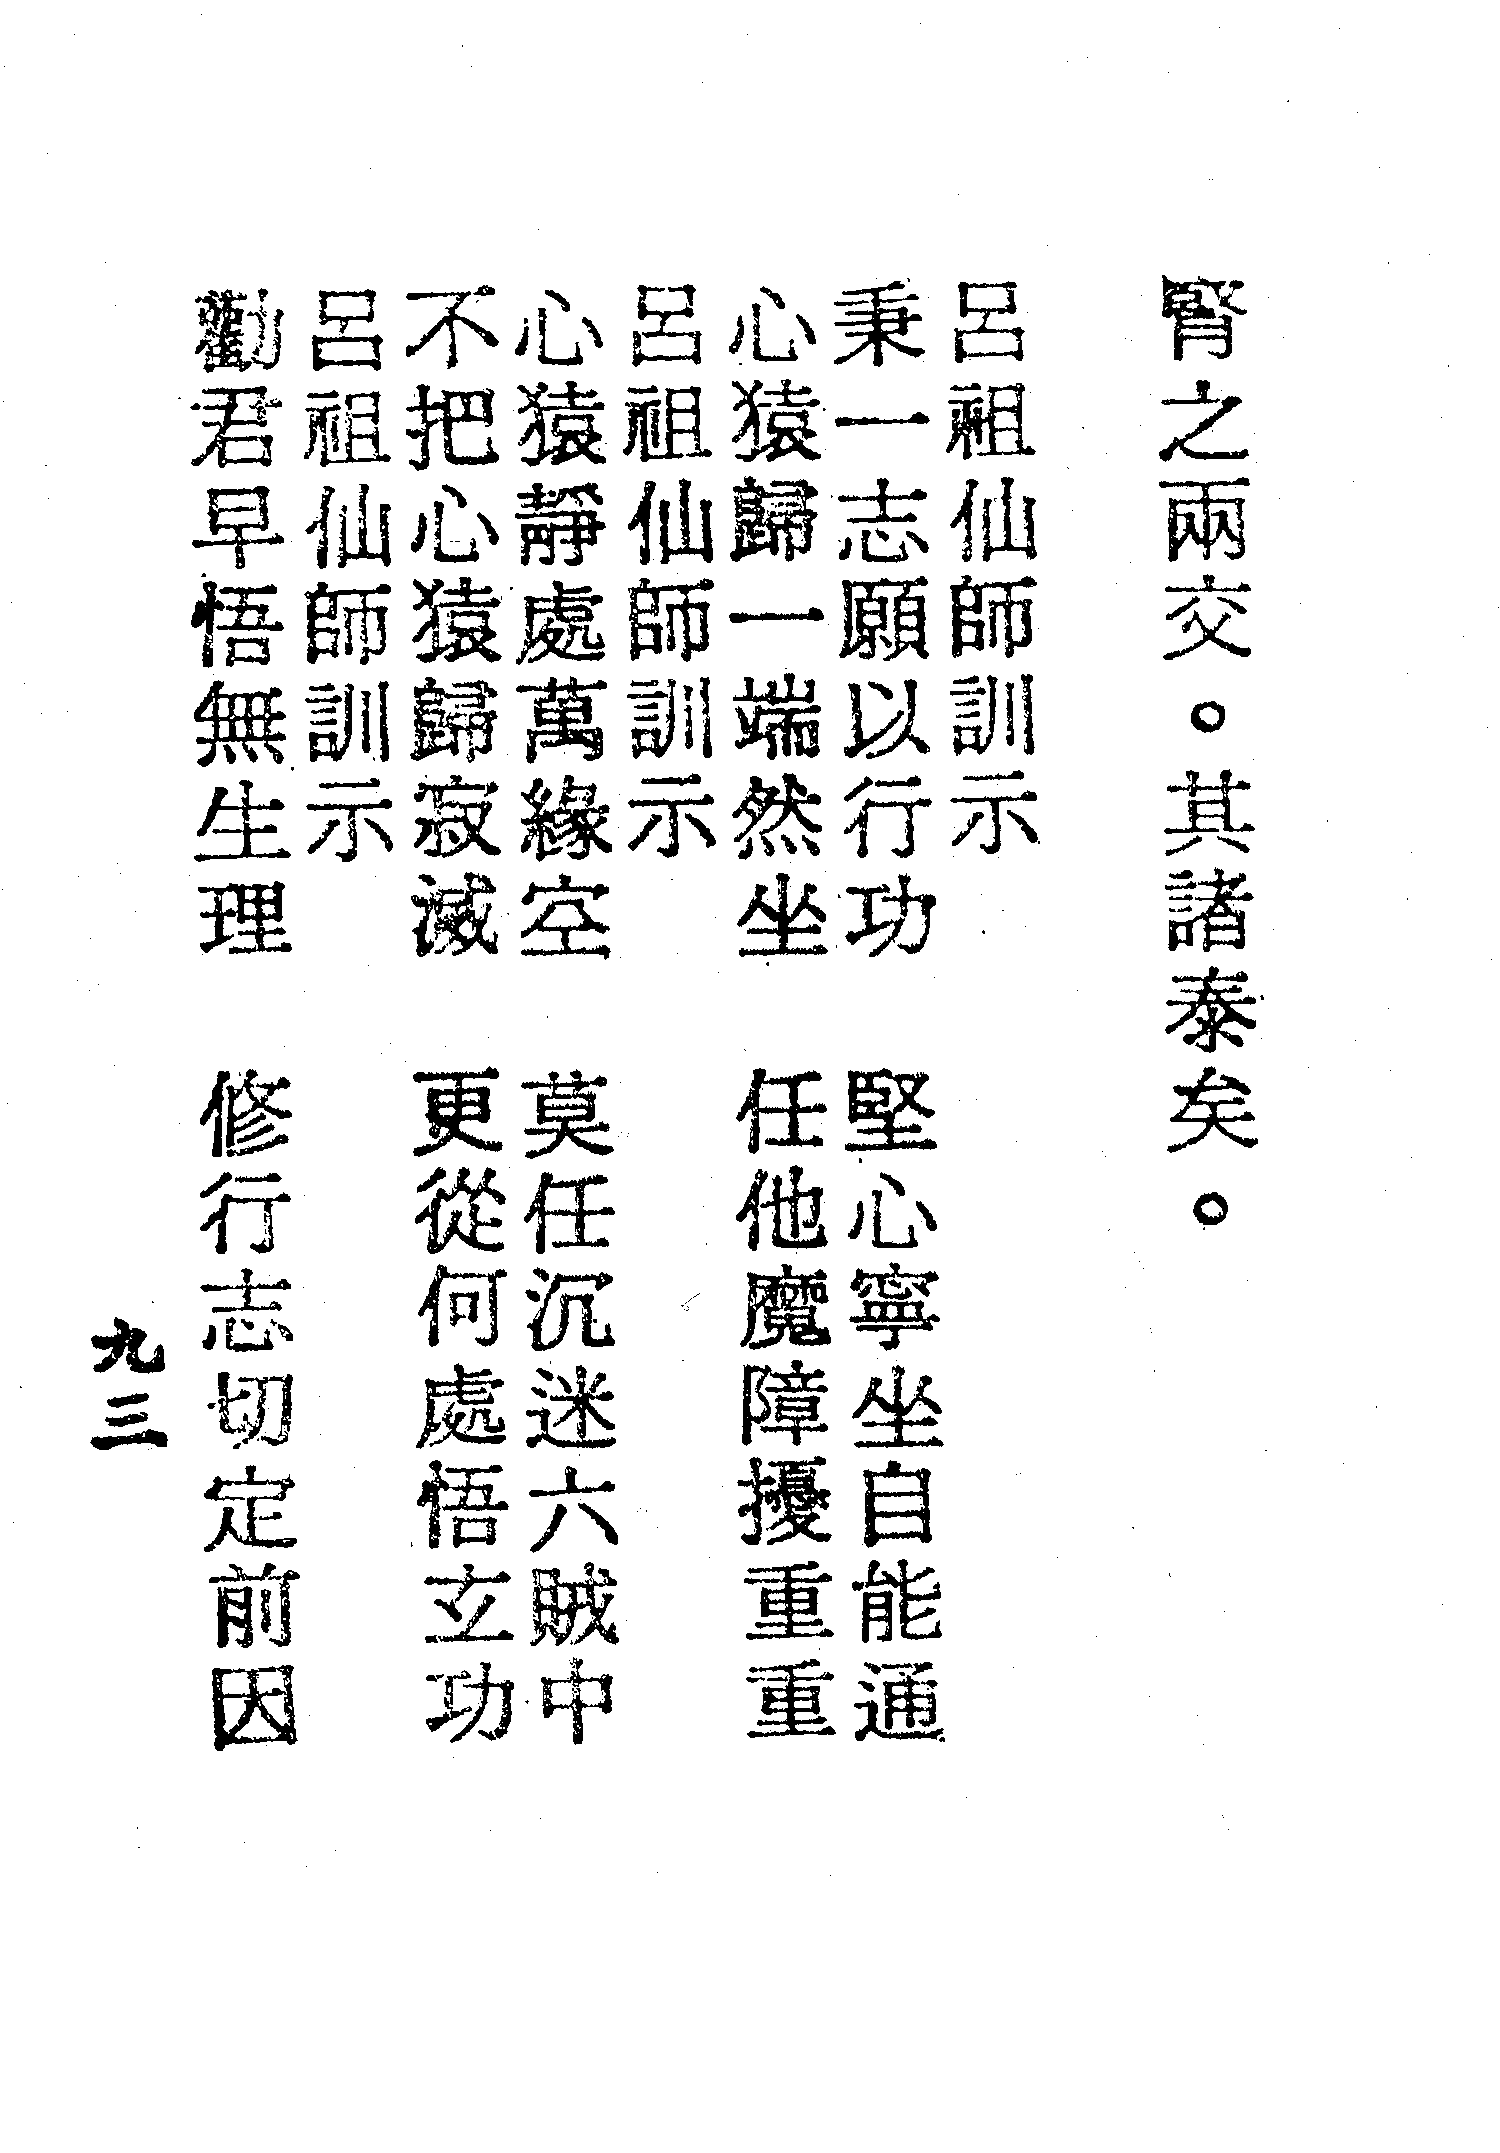 腎之兩交。其諸泰矣。
呂祖仙師訓示
秉一志願以行功　堅心寧坐自能通
心猿歸一端然坐　任他魔障擾重重
呂祖仙師訓示
心猿靜處萬緣空　莫任沉迷六賊中
不把心猿歸寂滅　更從何處悟玄功
呂祖仙師訓示
勸君早悟無生理　修行志切定前因
九三